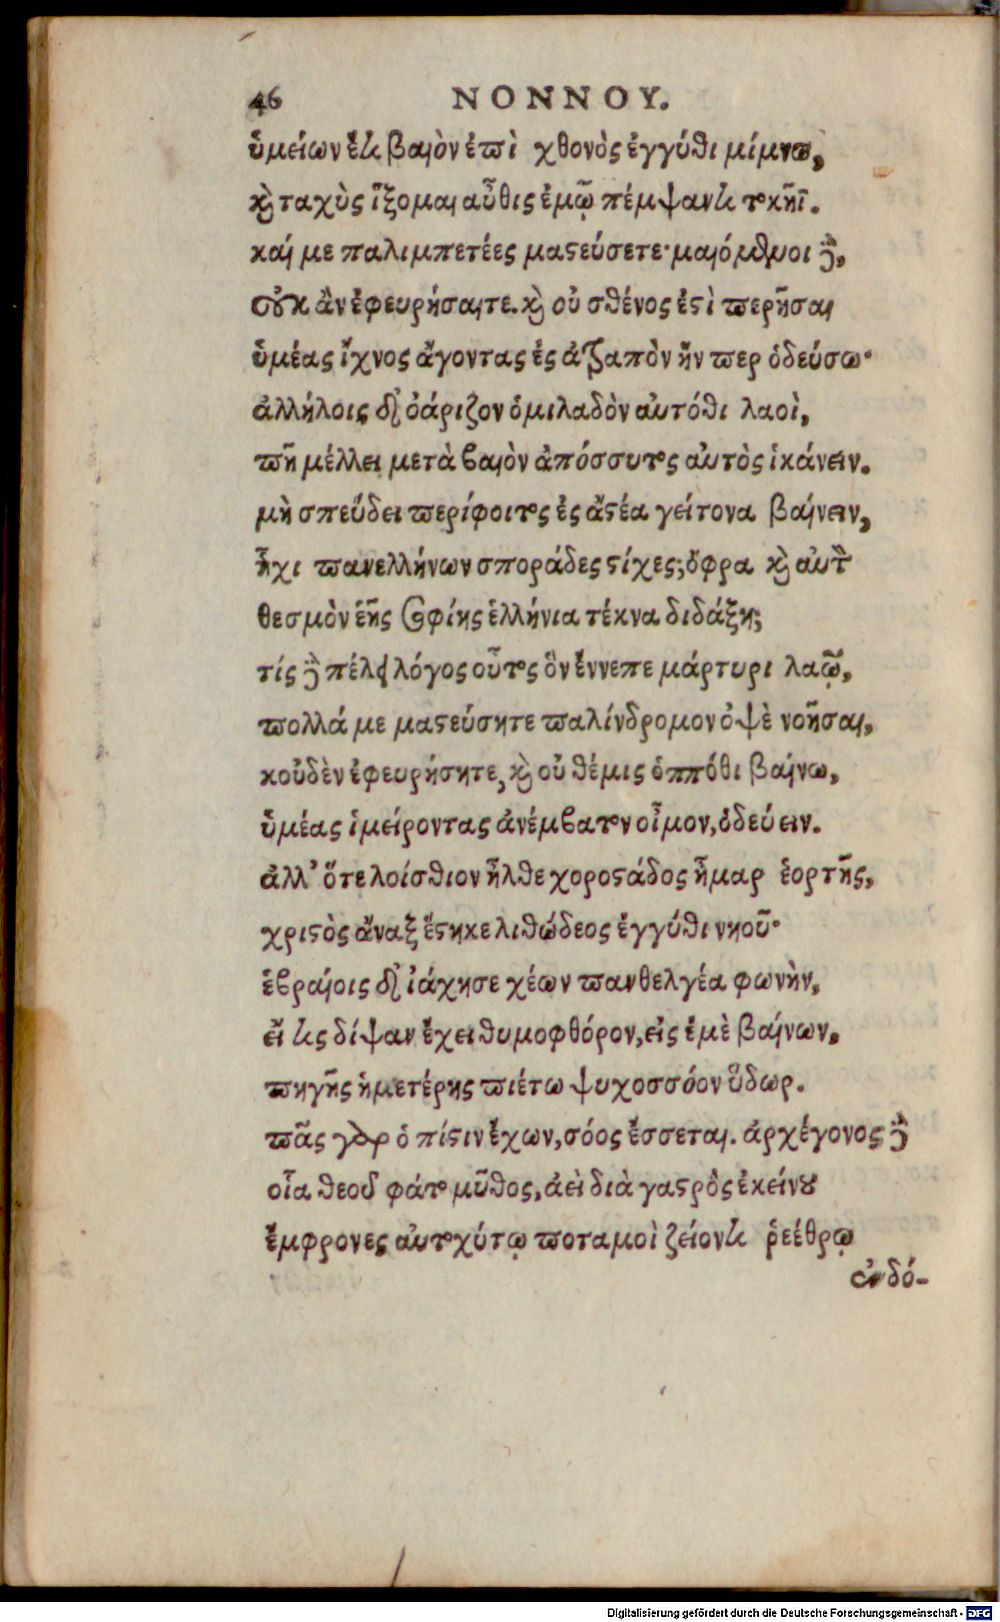 46 ΝΟΝΝΟΥ.
ὑμείων ἔτι βαιὸν ἐπὶ χθονὸς ἐγγύθι μίμνω,
καὶ ταχὺς ἵξομαι αὖθις ἐμῷ πέμψαντι τοκῆϊ.
καί με παλιμπετέες μαστεύσετε· μαιόμενοι δὲ,
οὐκ ἂν ἐφευρήσαιτε. καὶ οὐ σθένος ἐστὶ περῆσαι
ὑμέας ἴχνος ἄγοντας ἐς ἀτραπὸν ἥν περ ὁδεύσω·
ἀλλήλοις δ' ὀάριζον ὁμιλαδὸν αὐτόθι λαοὶ,
πῆ μέλλει μετὰ βαιὸν ἀπόσσυτος αὐτὸς ἱκάνειν.
μὴ σπεύδει περίφοιτος ἐς ἄστεα γείτονα βαίνειν,
ἧχι πανελλήνων σποράδες στίχες; ὄφρα καὶ αὐτὸς
θεσμὸν ἑῆς σοφίης ἑλλήνια τέκνα διδάξῃ;
τίς δὲ πέλει λόγος οὗτος ὃν ἔννεπε μάρτυρι λαῷ,
πολλά με μαστεύσητε παλίνδρομον ὀψὲ νοῆσαι,
κοὐδὲν ἐφευρήσητε, καὶ οὐ θέμις ὁππόθι βαίνω,
ὑμέας ἱμείροντας ἀνέμβατον οἶμον, ὁδεύειν.
ἀλλ' ὅτε λοίσθιον ἦλθε χοροστάδος ἦμαρ ἑορτῆς,
χριστὸς ἄναξ ἕστηκε λιθώδεος ἐγγύθι νηοῦ·
ἑβραίοις δ' ἰάχησε χέων πανθελγέα φωνὴν,
εἴ τις δίψαν ἔχει θυμοφθόρον, εἰς ἐμὲ βαίνων.
πηγῆς ἡμετέρης πιέτω ψυχοσσόον ὕδωρ.
πᾶς γὰρ ὁ πίστιν ἔχων, σόος ἔσσεται. ἀρχέγονος δὲ
οἷα θεοῦ φάτο μῦθος, ἀεὶ διὰ γαστρὸς ἐκείνου
ἔμφρονες αὐτοχύτῳ ποταμοὶ ζείοντι ῥεέθρῳ
ἐνδό-
Digitalisierung gefördert durch die Deutsche Forschungsgemeinschaft - DFG